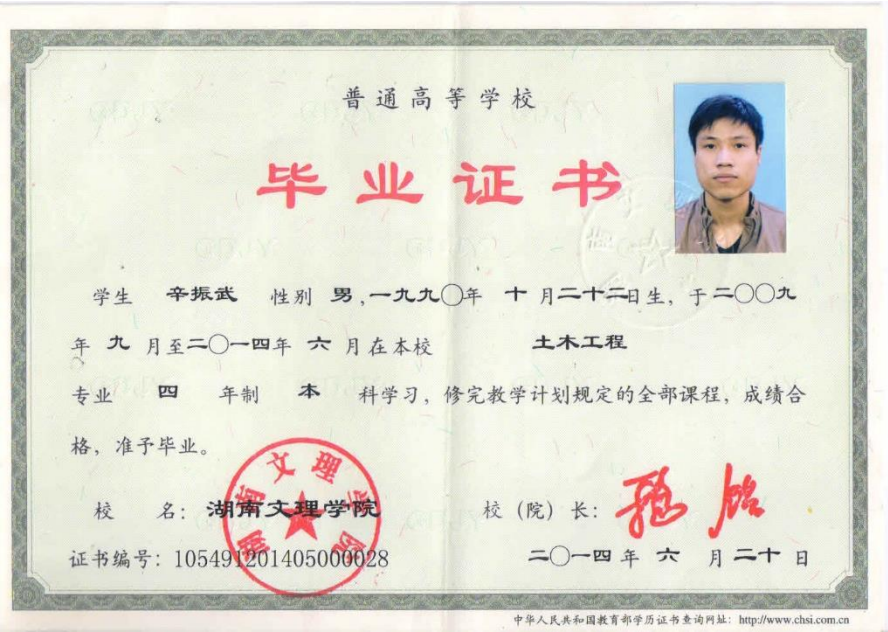 普通高等学校
毕业证书
学生 辛振武 性别 男,一九九〇年 十 月二十二日生,于二〇〇九
年 九 月至二〇一四年 六 月在本校 土木工程
专业 四 年制 本 科学习,修完教学计划规定的全部课程,成绩合
格,准予毕业。
湖南文理学院
校 名: 湖南文理学院 校(院)长:
证书编号: 105491201405000028 二〇一四年 六 月二十日
中华人民共和国教育部学历证书查询网址: http://www.chsi.com.cn